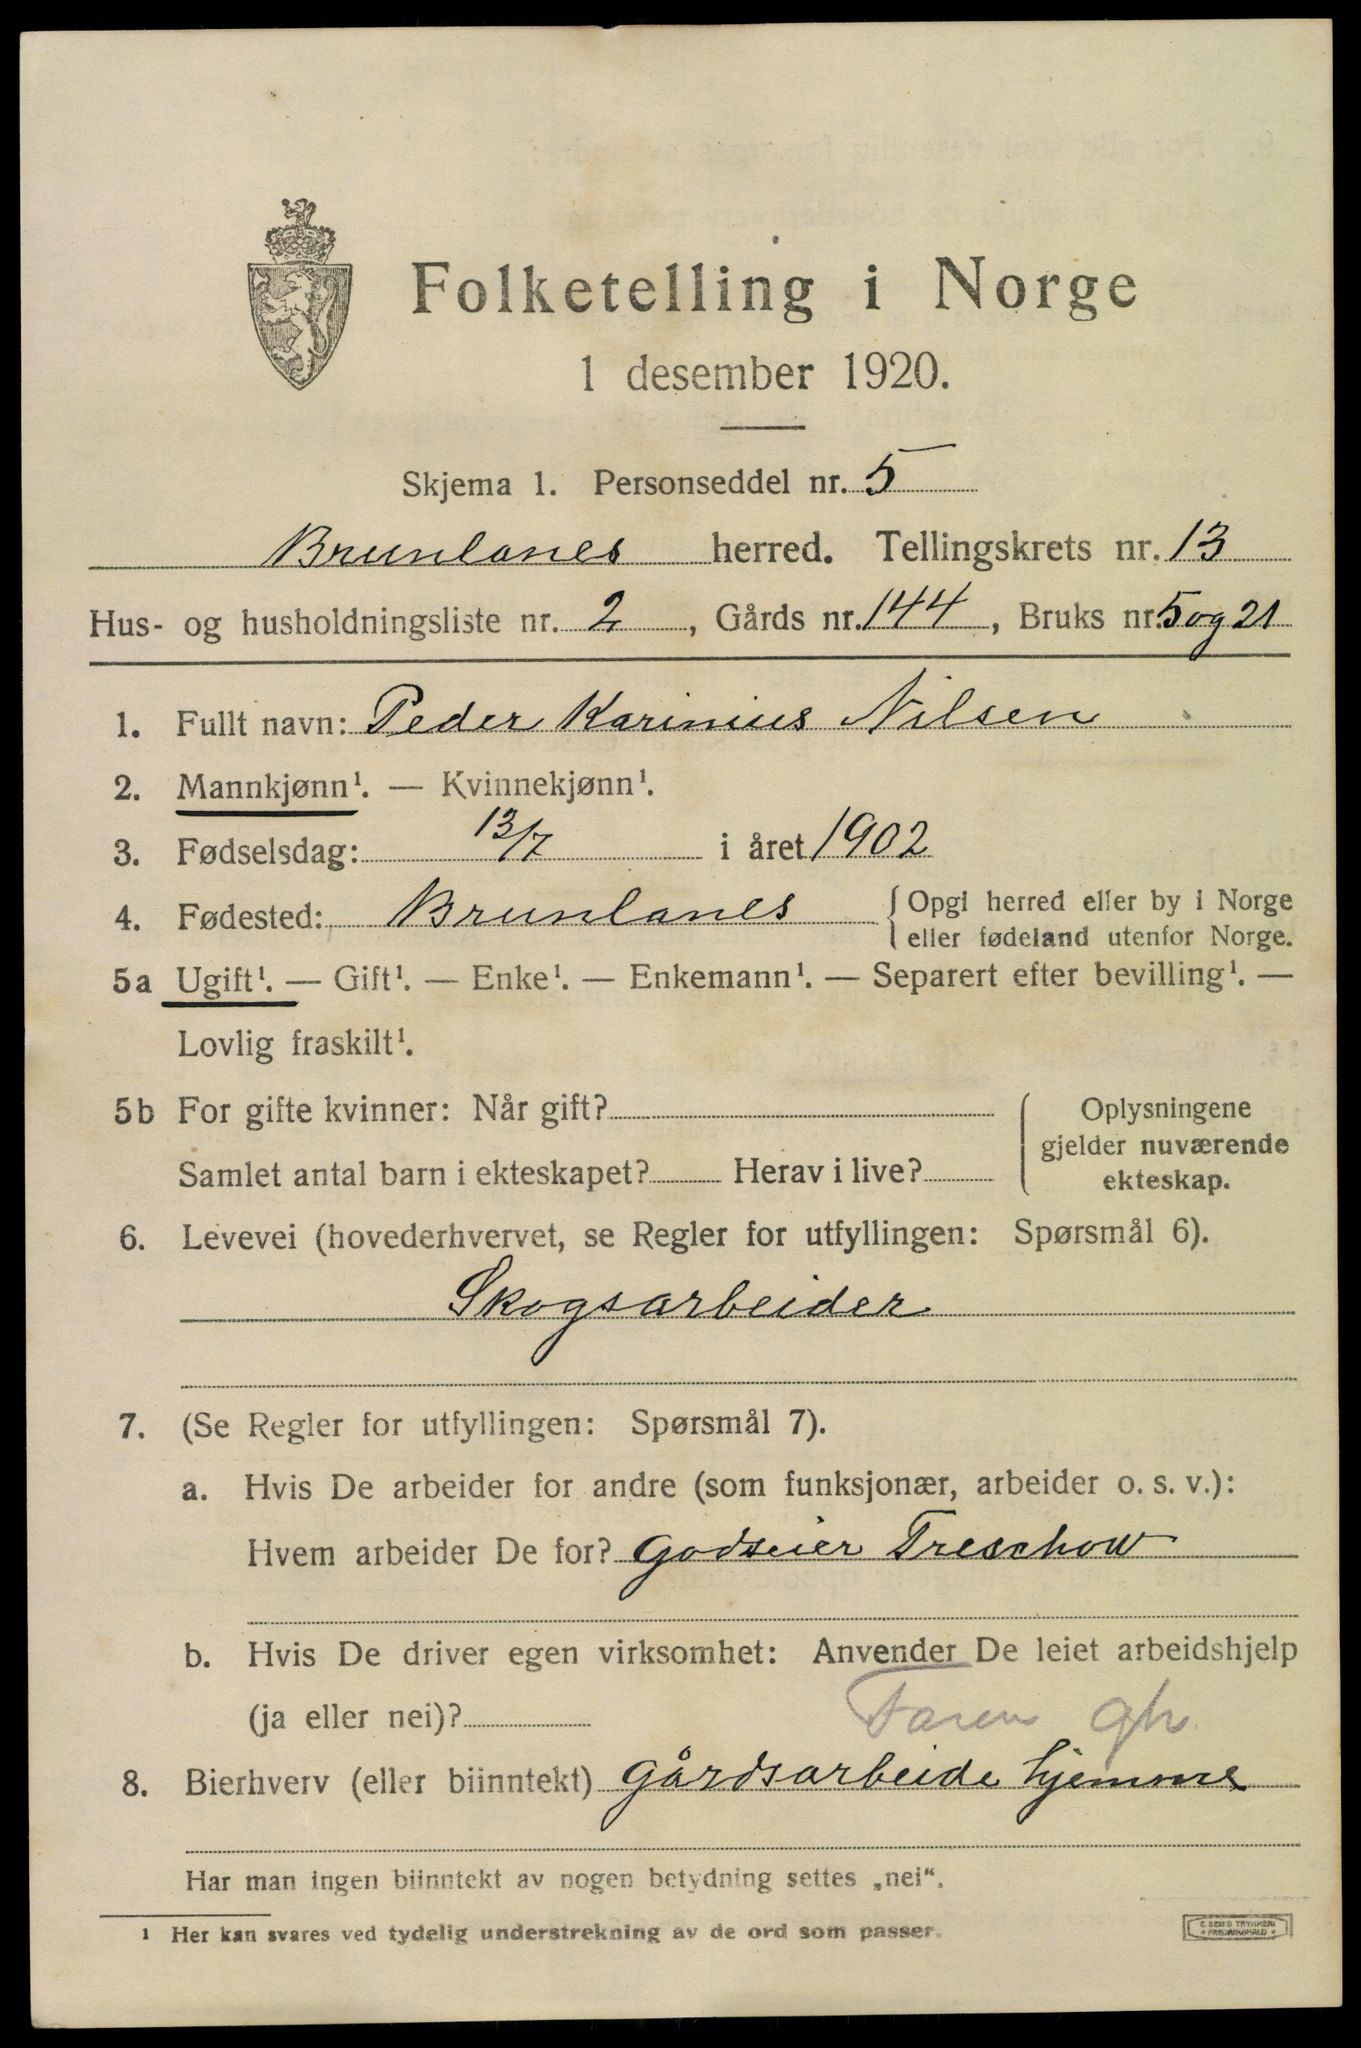 Folketelling i Norge
1 desember 1920.
Skjema 1. Personseddel nr. 5
Brunlanes herred. Tellingskrets nr. 13
Hus- og husholdningsliste nr. 2, Gårds nr. 144, Bruks nr. 5 og 21
1. Fullt navn: Peder Karinius Nilsen
2. Mannkjønn¹. — Kvinnekjønn¹.
3. Fødselsdag: 13/7 i året 1902
4. Fødested: Brunlanes { Opgi herred eller by i Norge
eller fødeland utenfor Norge.
5a Ugift¹. — Gift¹. — Enke¹. — Enkemann¹. — Separert efter bevilling¹. —
Lovlig fraskilt¹.
5b For gifte kvinner: Når gift? { Oplysningene
gjelder nuværende
Samlet antal barn i ekteskapet? Herav i live? ekteskap.
6. Levevei (hovederhvervet, se Regler for utfyllingen: Spørsmål 6).
Skogsarbeider
7. (Se Regler for utfyllingen: Spørsmål 7).
a. Hvis De arbeider for andre (som funksjonær, arbeider o. s. v.):
Hvem arbeider De for? Godseier Treschow
b. Hvis De driver egen virksomhet: Anvender De leiet arbeidshjelp
(ja eller nei)? Faren
8. Bierhverv (eller biinntekt) Gårdsarbeide hjemme
Har man ingen biinntekt av nogen betydning settes „nei“.
¹ Her kan svares ved tydelig understrekning av de ord som passer.